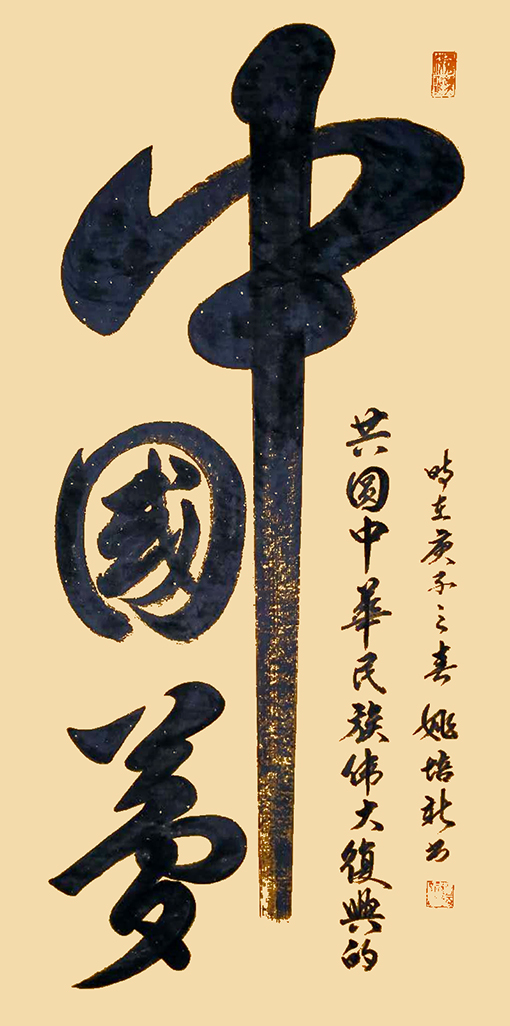 中國夢
共圆中華民族伟大復興的
時在庚子之春 姚培新书